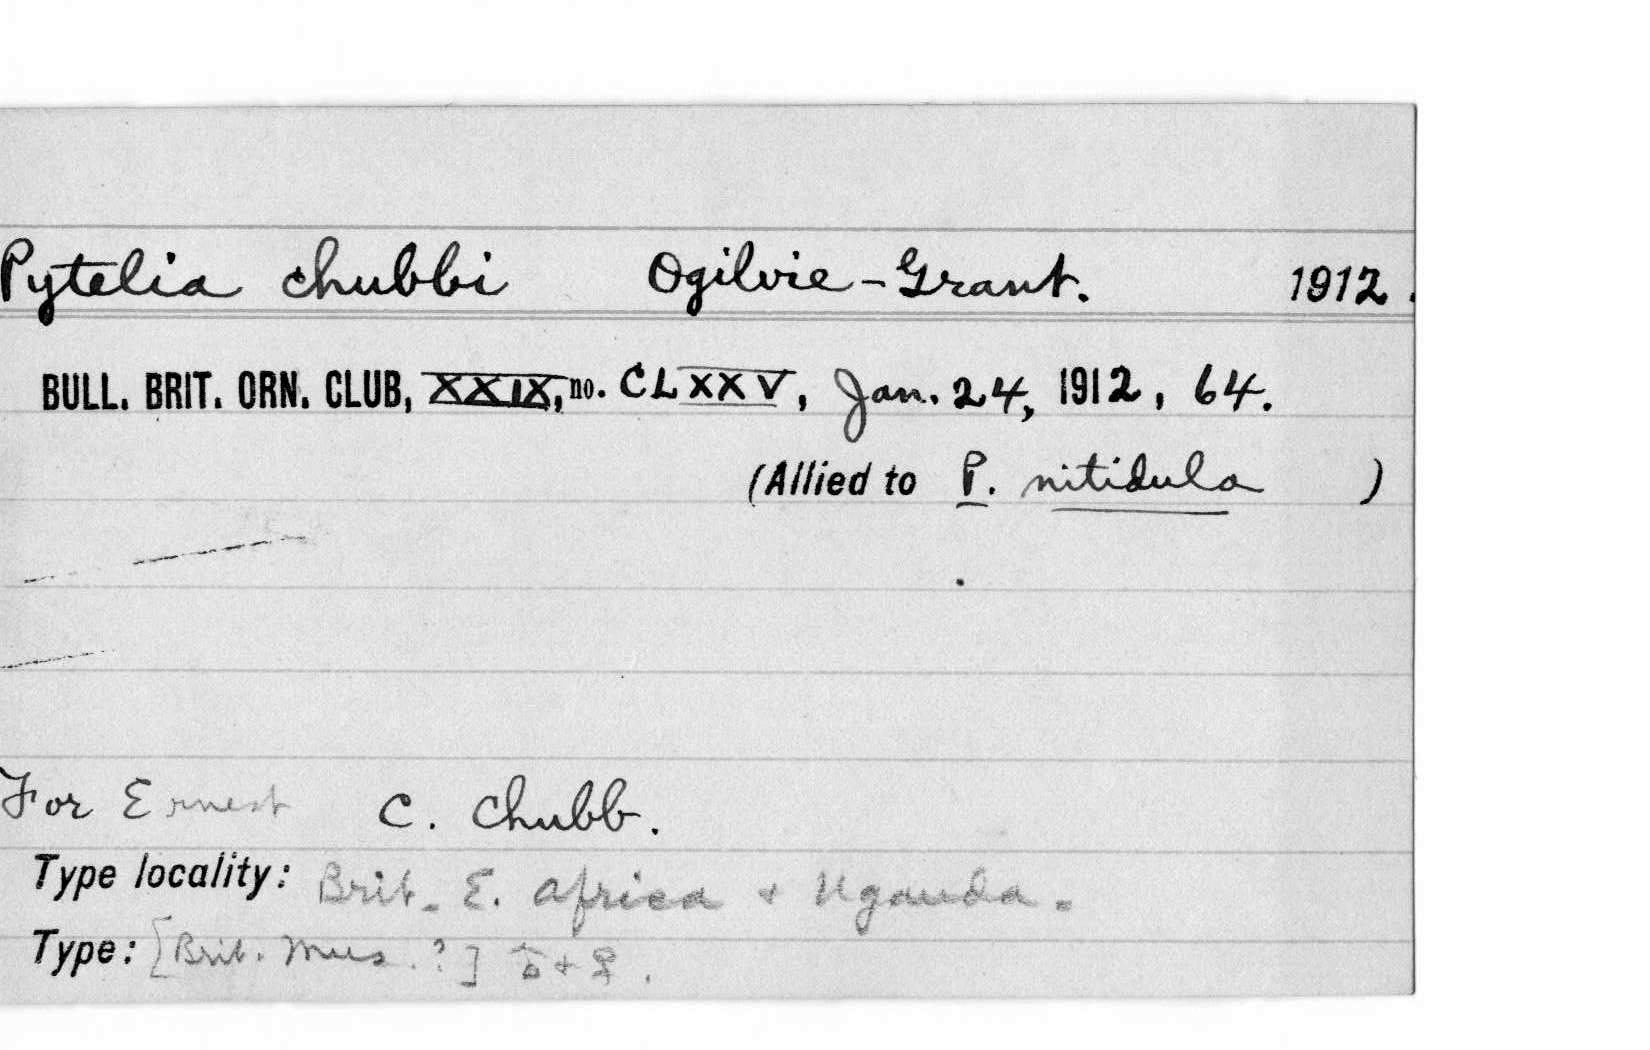 Pytelia chubbi Ogilvie-Grant. 1912.
BULL. BRIT. ORN. CLUB, XXIX, no. CLXXV, Jan. 24, 1912, 64.
(Allied to P. nitidula )
For Ernest C. Chubb.
Type locality: Brit. E. Africa + Uganda.
Type: [Brit. Mus. ?] ♂ + ♀.